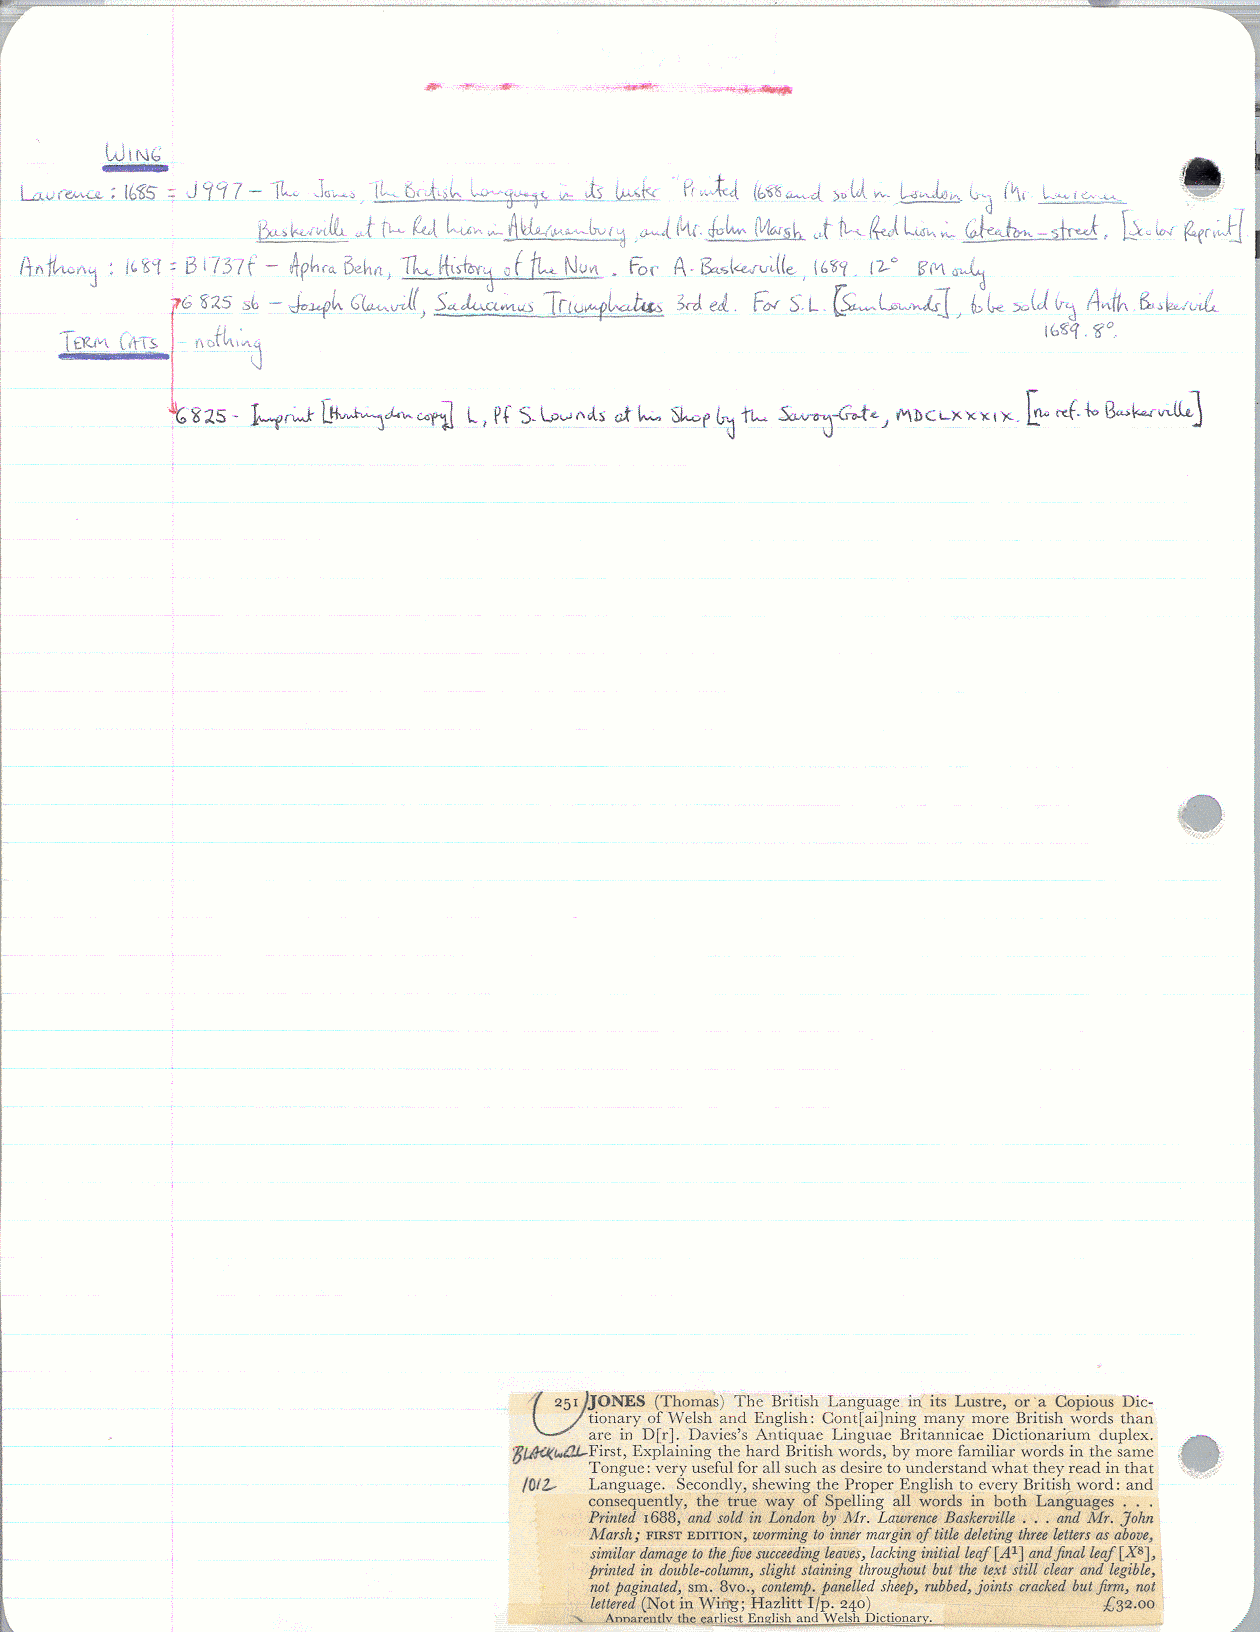 WING
Laurence : 1685 = J997 – Tho Jones, The British Language in its luster "Printed 1688 and sold in London by Mr Laurence
Baskerville at the Red Lion in Aldermanbury, and Mr. John Marsh at the Red Lion in Cateaton-street. [Scolar Reprint]
Anthony : 1689 = B1737f – Aphra Behn, The History of the Nun. For A. Baskerville, 1689. 12° BM only
6825 sb – Joseph Glanvill, Saducimus Triumphatus 3rd ed. For S.L. [Sam Lownds], to be sold by Anth. Baskervile
1689. 8°.
TERM CATS – nothing
6825 - Imprint [Huntingdon copy] L, Pf S. Lownds at his Shop by the Savoy-Gate, MDCLXXXIX. [no ref. to Baskerville]
251 JONES (Thomas) The British Language in its Lustre, or a Copious Dic-
tionary of Welsh and English: Cont[ai]ning many more British words than
are in D[r]. Davies's Antiquae Linguae Britannicae Dictionarium duplex.
BLACKWELL First, Explaining the hard British words, by more familiar words in the same
Tongue: very useful for all such as desire to understand what they read in that
1012 Language. Secondly, shewing the Proper English to every British word: and
consequently, the true way of Spelling all words in both Languages . . .
Printed 1688, and sold in London by Mr. Lawrence Baskerville . . . and Mr. John
Marsh; FIRST EDITION, worming to inner margin of title deleting three letters as above,
similar damage to the five succeeding leaves, lacking initial leaf [A¹] and final leaf [X⁸],
printed in double-column, slight staining throughout but the text still clear and legible,
not paginated, sm. 8vo., contemp. panelled sheep, rubbed, joints cracked but firm, not
lettered (Not in Wing; Hazlitt I/p. 240) £32.00
Apparently the earliest English and Welsh Dictionary.